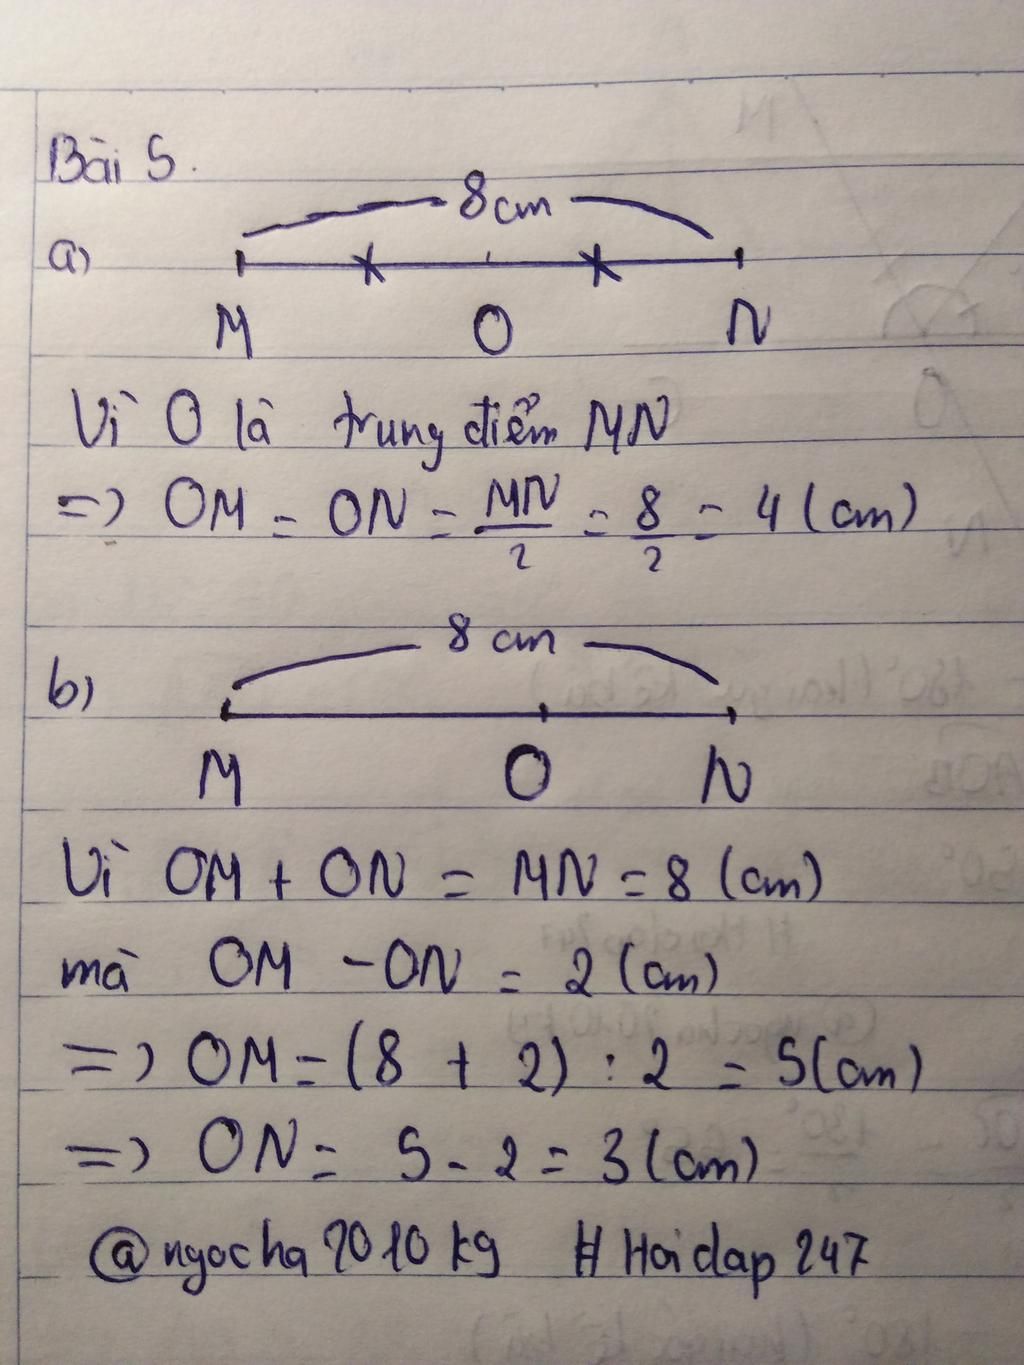 Bài 5.
8cm
a)
M O N
Vì O là trung điểm MN
=> OM = ON = MN/2 = 8/2 = 4 (cm)
8 cm
b)
M O N
Vì OM + ON = MN = 8 (cm)
mà OM - ON = 2 (cm)
=> OM = (8 + 2) : 2 = 5 (cm)
=> ON = 5 - 2 = 3 (cm)
@ngocha2010kg #Hoidap247